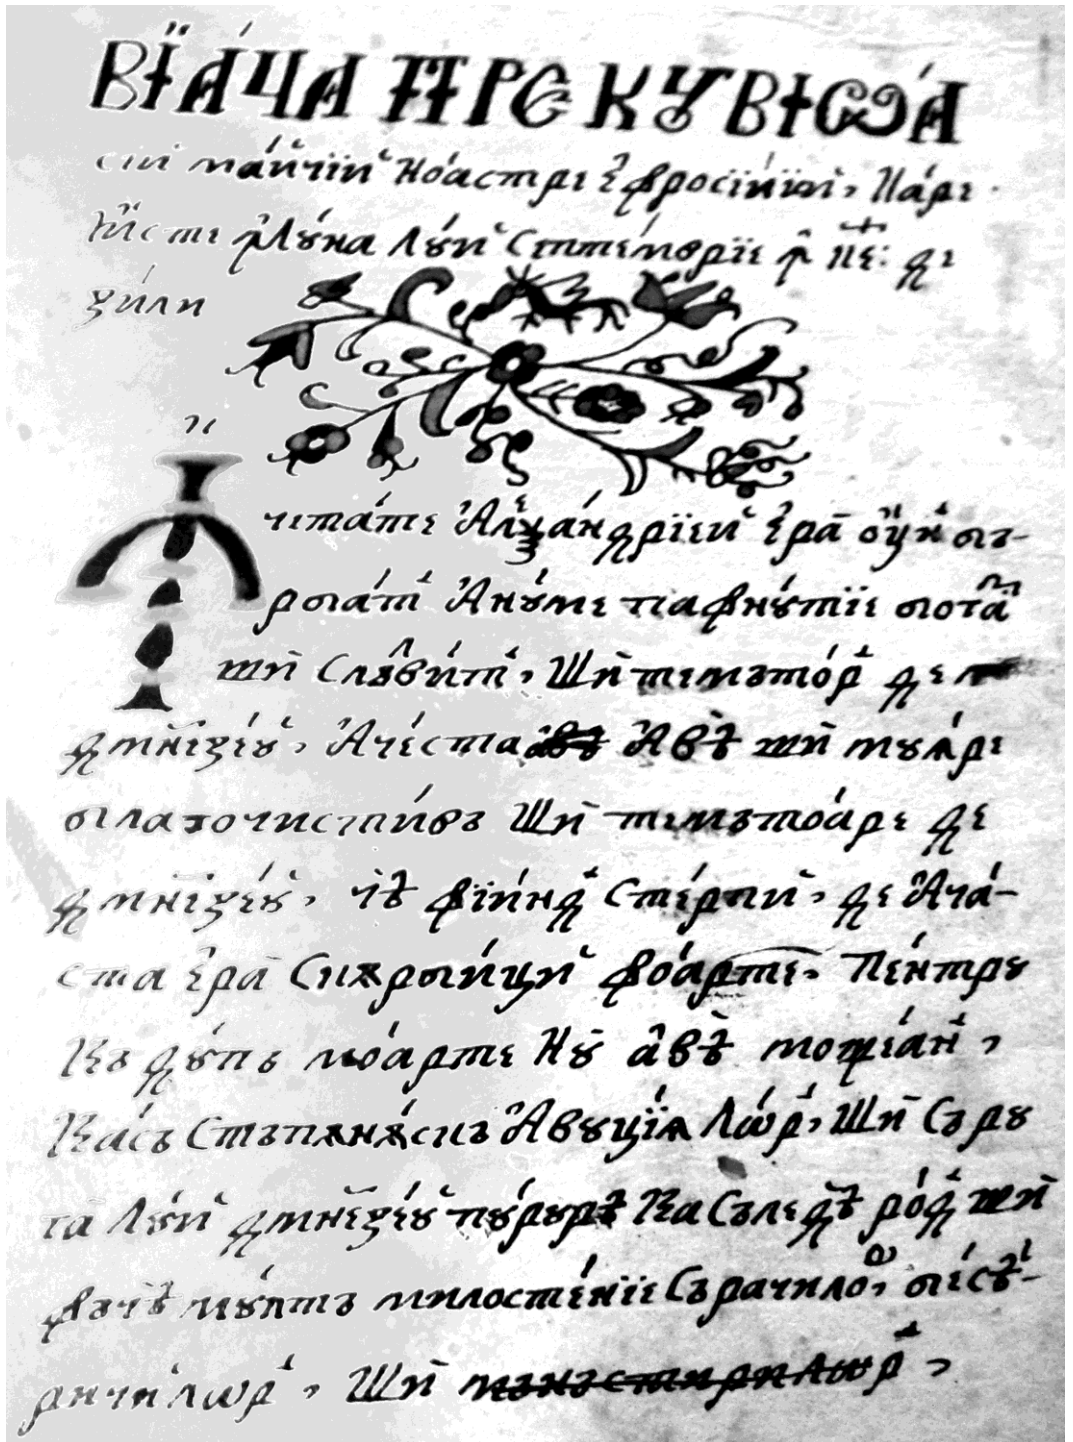 ВІА́ЧА ПРЕКꙊВІѠ́А
сїй ма́йчїй но́астре е҆фросі́нїй, ка́ре
є҆́сте ꙟ҆ лꙋна лꙋ́й септе́мврїе ꙟ҆ к҃є: де
зи́ле
ꙟ҆ четáте А҆леѯáндрїей е҆рà ᲂу҆́н бъ-
рбáт А҆нꙋ́ме пафнꙋ́тїе богáт
шѝ слъви́т, Шѝ темътóр де
дмнезе́ꙋ, А҆че́ста А҆вѣ̀ шѝ мꙋѧ́ре
благочисти́въ Шѝ темътоáре де
дмнезе́ꙋ, чѣ фїи́нд сте́рпи, де А҆чá-
ста е҆рà Скѫрби́ци фоáрте, Пе́нтрꙋ
Къ дꙋ́пъ моáрте Нꙋ̀ а҆вѣ̀ мощеáн,
Каcъ Стъпѫнѣ́скъ А҆вꙋці́ѧ Лѡ́р, Шѝ Съ рꙋ
га̀ Лꙋ́й дмнезе́ꙋ пꙋ́рꙋрѣ Ка Съледѣ ро́д шѝ
фъчѣ мꙋ́лтъ милосте́нїе Сърачилор, бесѣ́-
ричилѡр, Шѝ мънъстирилѡр,